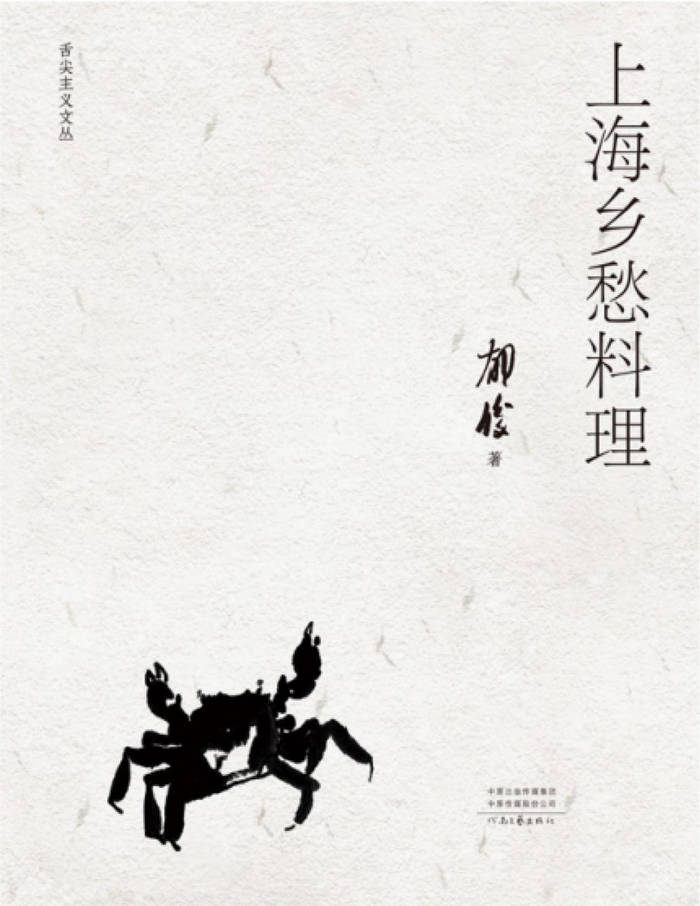 上海乡愁料理
郁俊
著
舌尖主义文丛
中原出版传媒集团
中原传媒股份公司
河南文艺出版社